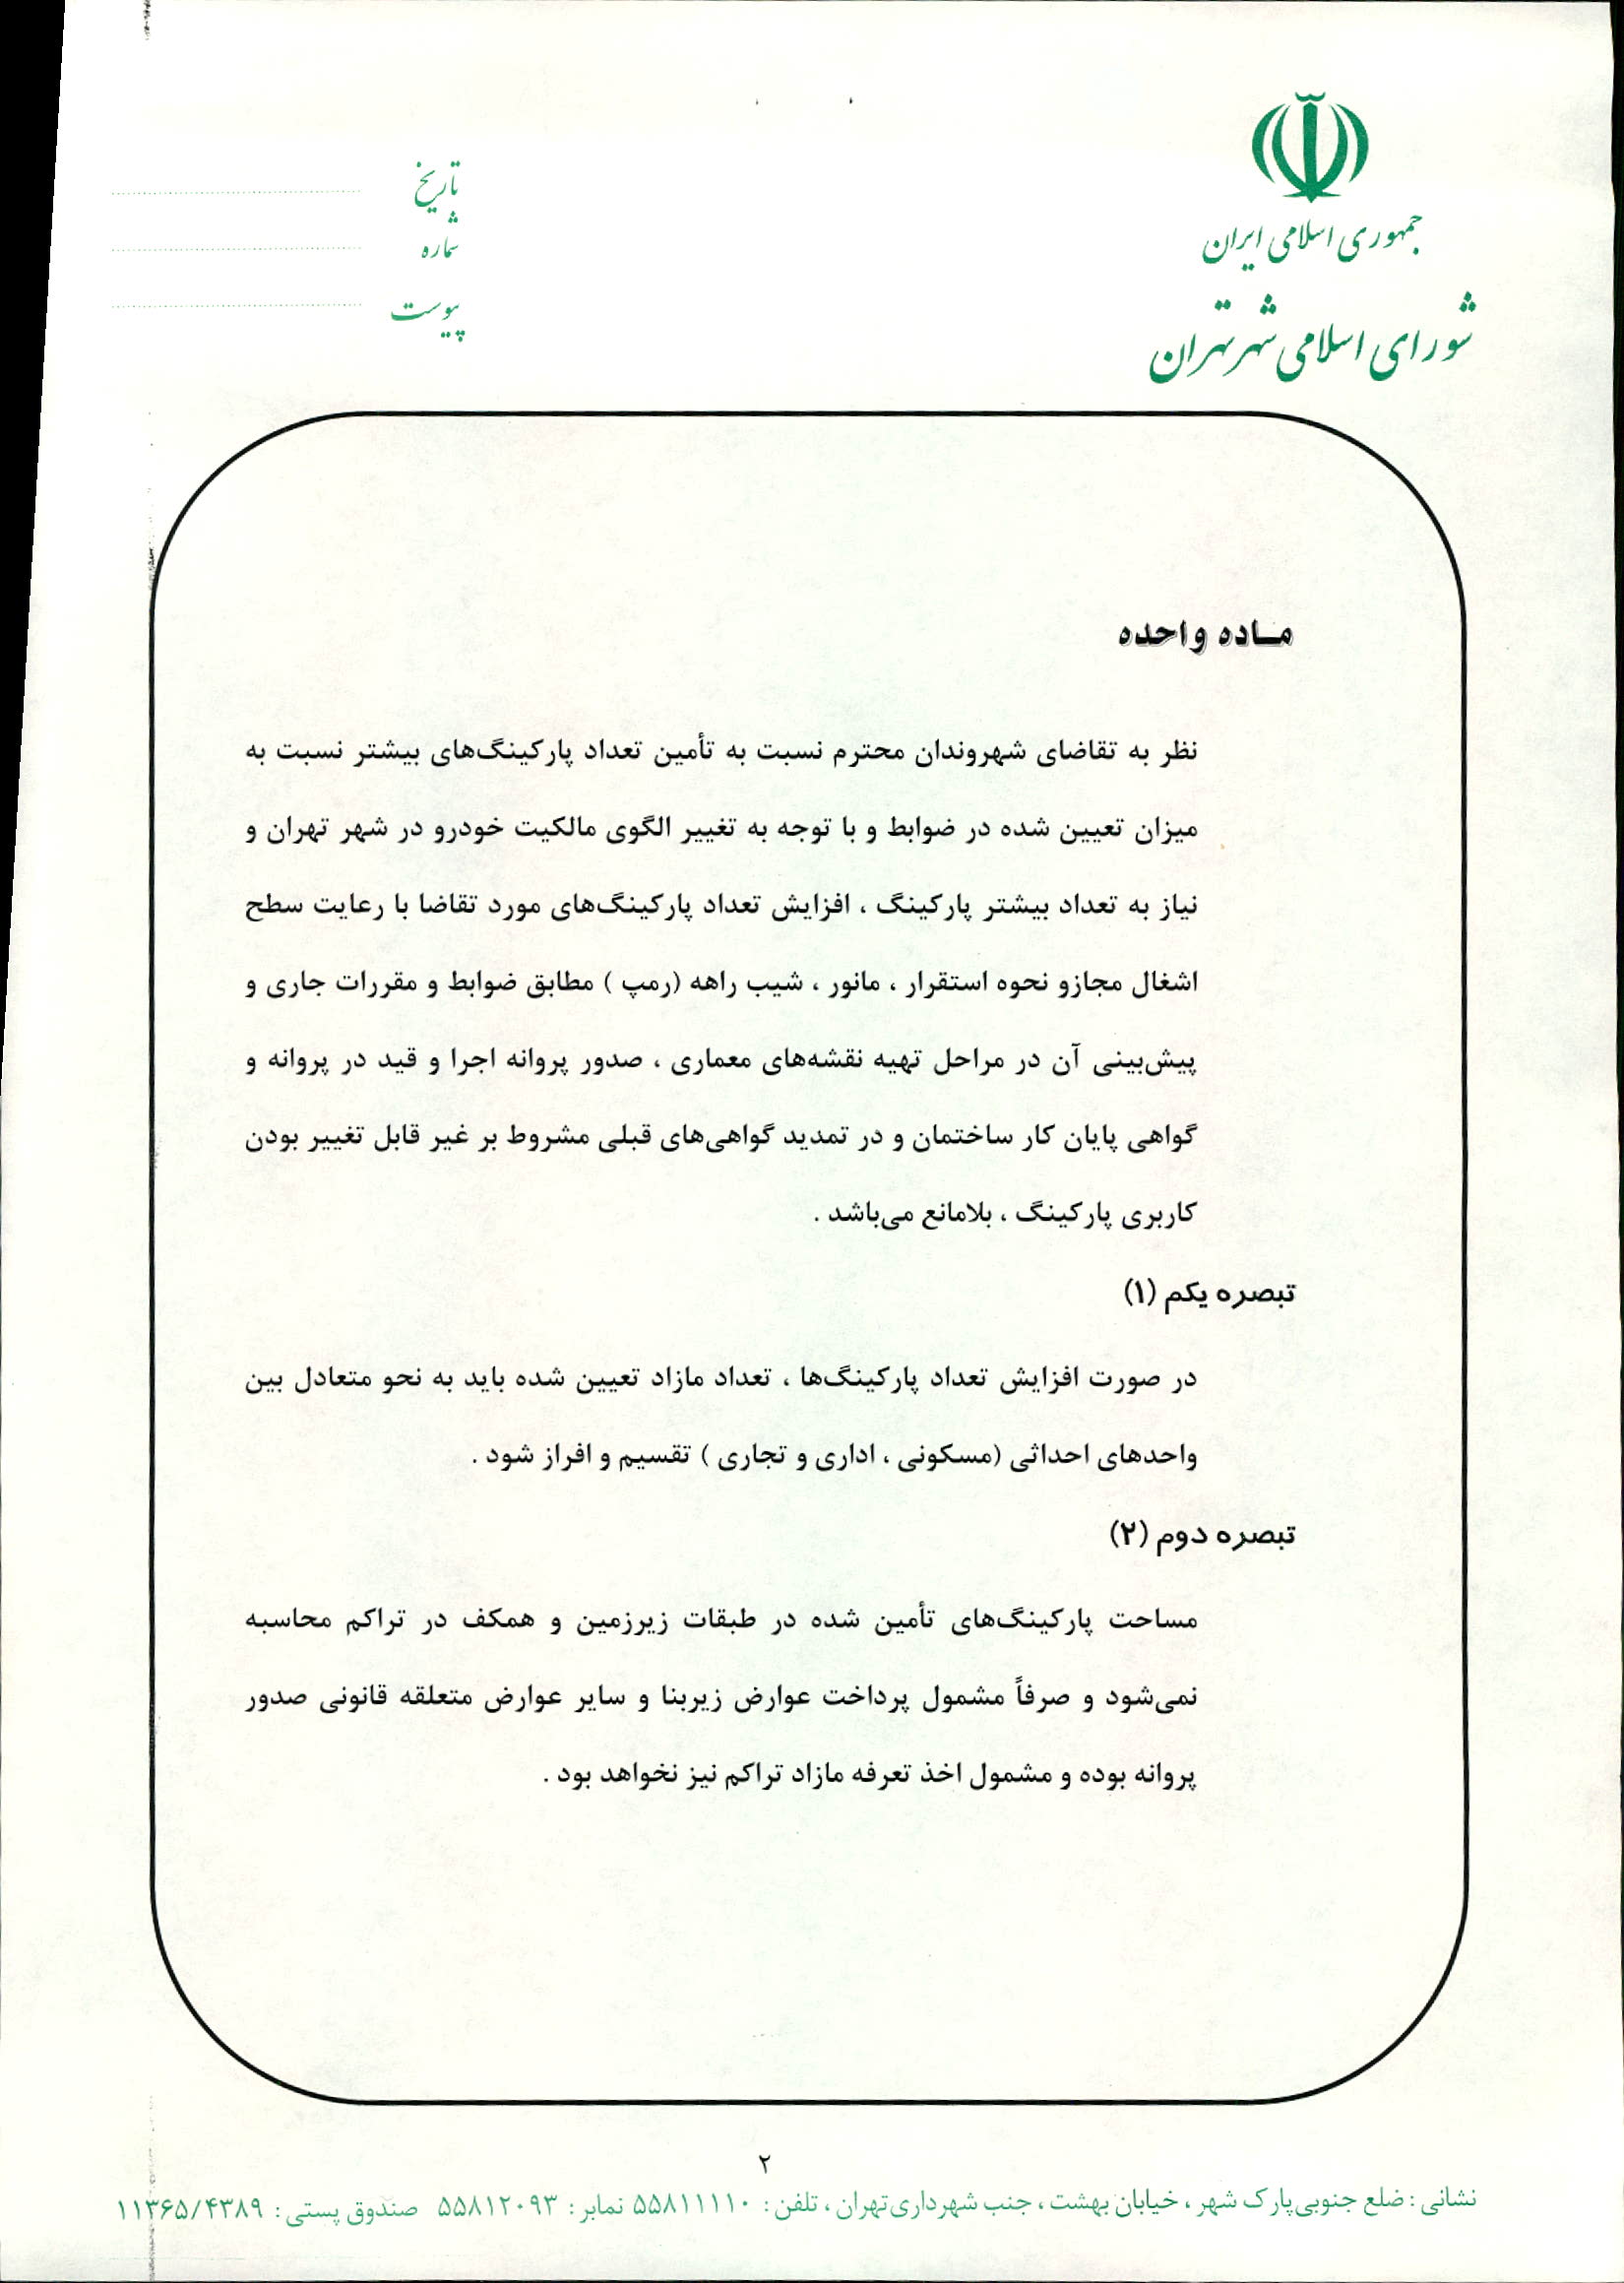 جمهوری اسلامی ایران
شورای اسلامی شهر تهران
تاریخ
شماره
پیوست
ماده واحده
نظر به تقاضای شهروندان محترم نسبت به تأمین تعداد پارکینگ‌های بیشتر نسبت به
میزان تعیین شده در ضوابط و با توجه به تغییر الگوی مالکیت خودرو در شهر تهران و
نیاز به تعداد بیشتر پارکینگ ، افزایش تعداد پارکینگ‌های مورد تقاضا با رعایت سطح
اشغال مجازو نحوه استقرار ، مانور ، شیب راهه (رمپ ) مطابق ضوابط و مقررات جاری و
پیش‌بینی آن در مراحل تهیه نقشه‌های معماری ، صدور پروانه اجرا و قید در پروانه و
گواهی پایان کار ساختمان و در تمدید گواهی‌های قبلی مشروط بر غیر قابل تغییر بودن
کاربری پارکینگ ، بلامانع می‌باشد .
تبصره یکم (۱)
در صورت افزایش تعداد پارکینگ‌ها ، تعداد مازاد تعیین شده باید به نحو متعادل بین
واحدهای احداثی (مسکونی ، اداری و تجاری ) تقسیم و افراز شود .
تبصره دوم (۲)
مساحت پارکینگ‌های تأمین شده در طبقات زیرزمین و همکف در تراکم محاسبه
نمی‌شود و صرفاً مشمول پرداخت عوارض زیربنا و سایر عوارض متعلقه قانونی صدور
پروانه بوده و مشمول اخذ تعرفه مازاد تراکم نیز نخواهد بود .
۲
نشانی : ضلع جنوبی پارک شهر ، خیابان بهشت ، جنب شهرداری تهران ، تلفن : ۵۵۸۱۱۱۱۰ نمابر : ۵۵۸۱۲۰۹۳ صندوق پستی : ۱۱۳۶۵/۴۳۸۹